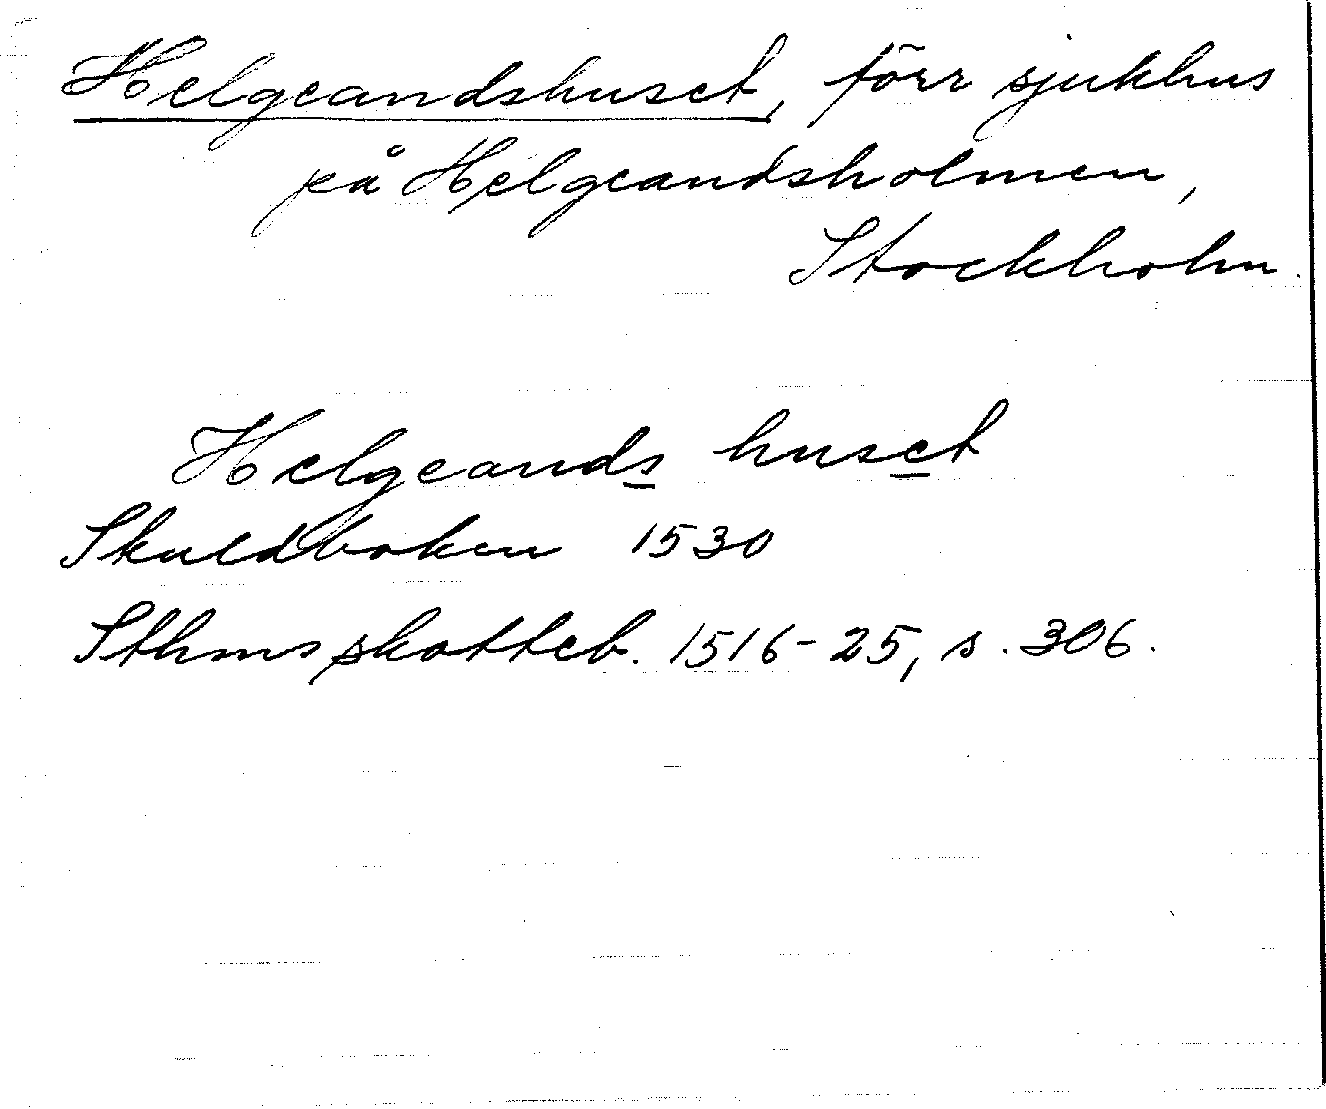 Helgeandshuset, förr sjukhus
på Helgeandsholmen,
Stockholm.
Helgeands huset
Skuldboken 1530
Sthms skatteb. 1516-25, s. 306.